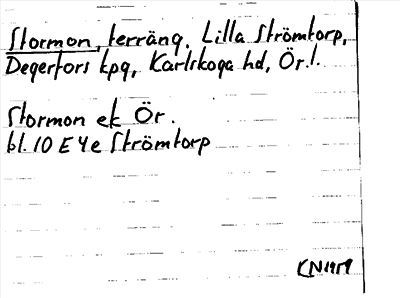 Stormon, terräng. Lilla Strömtorp,
Degerfors kpg, Karlskoga hd, Ör.l.
Stormon ek Ör.
bl. 10 E 4 e Strömtorp